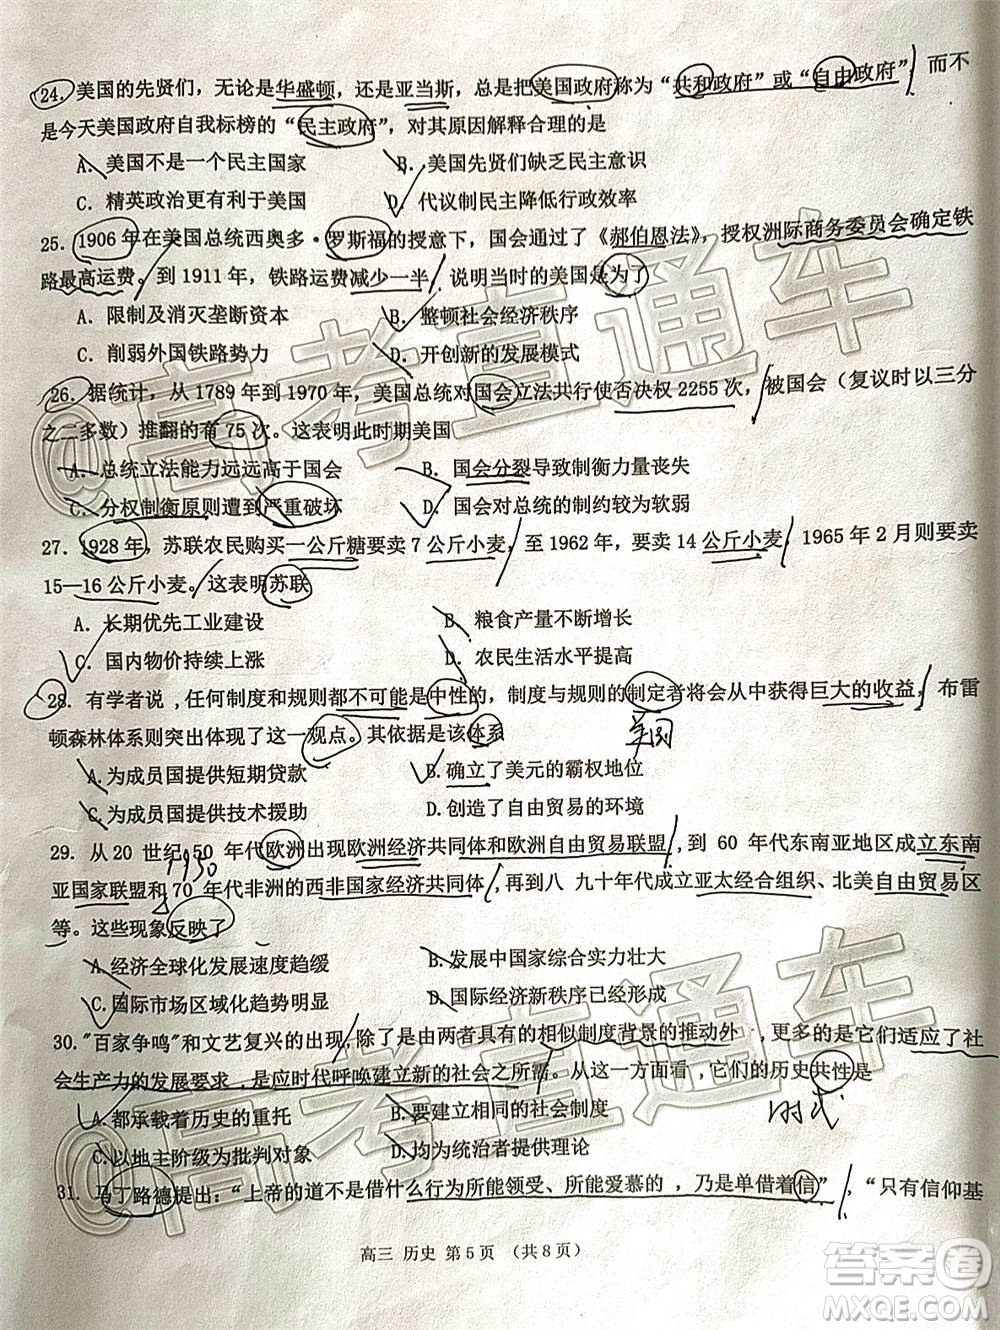 24. 美国的先贤们，无论是华盛顿，还是亚当斯，总是把美国政府称为“共和政府”或“自由政府”，而不
是今天美国政府自我标榜的“民主政府”，对其原因解释合理的是
A. 美国不是一个民主国家 B. 美国先贤们缺乏民主意识
C. 精英政治更有利于美国 D. 代议制民主降低行政效率
25. 1906 年在美国总统西奥多·罗斯福的授意下，国会通过了《郝伯恩法》，授权洲际商务委员会确定铁
路最高运费。到 1911 年，铁路运费减少一半，说明当时的美国是为了
A. 限制及消灭垄断资本 B. 整顿社会经济秩序
C. 削弱外国铁路势力 D. 开创新的发展模式
26. 据统计，从 1789 年到 1970 年，美国总统对国会立法共行使否决权 2255 次，被国会（复议时以三分
之二多数）推翻的有 75 次。这表明此时期美国
A. 总统立法能力远远高于国会 B. 国会分裂导致制衡力量丧失
C. 分权制衡原则遭到严重破坏 D. 国会对总统的制约较为软弱
27. 1928 年，苏联农民购买一公斤糖要卖 7 公斤小麦，至 1962 年，要卖 14 公斤小麦，1965 年 2 月则要卖
15—16 公斤小麦。这表明苏联
A. 长期优先工业建设 B. 粮食产量不断增长
C. 国内物价持续上涨 D. 农民生活水平提高
28. 有学者说，任何制度和规则都不可能是中性的，制度与规则的制定者将会从中获得巨大的收益，布雷
顿森林体系则突出体现了这一观点。其依据是该体系
美国
A.为成员国提供短期贷款 B.确立了美元的霸权地位
C.为成员国提供技术援助 D.创造了自由贸易的环境
29. 从 20 世纪 50 年代欧洲出现欧洲经济共同体和欧洲自由贸易联盟，到 60 年代东南亚地区成立东南
1950
亚国家联盟和 70 年代非洲的西非国家经济共同体，再到八 九十年代成立亚太经合组织、北美自由贸易区
等。这些现象反映了
A.经济全球化发展速度趋缓 B.发展中国家综合实力壮大
C.国际市场区域化趋势明显 D.国际经济新秩序已经形成
30."百家争鸣"和文艺复兴的出现，除了是由两者具有的相似制度背景的推动外 ，更多的是它们适应了社
会生产力的发展要求 ,是应时代呼唤建立新的社会之所需。从这一方面看 ，它们的历史共性是
A.都承载着历史的重托 B.要建立相同的社会制度
C.以地主阶级为批判对象 D.均为统治者提供理论
31. 马丁路德提出：“上帝的道不是借什么行为所能领受、所能爱慕的 ，乃是单借着信”，“只有信仰基
高三 历史 第 5 页 （共 8 页）
@高考直通车
@高考直通车
答案圈
MXQE.COM